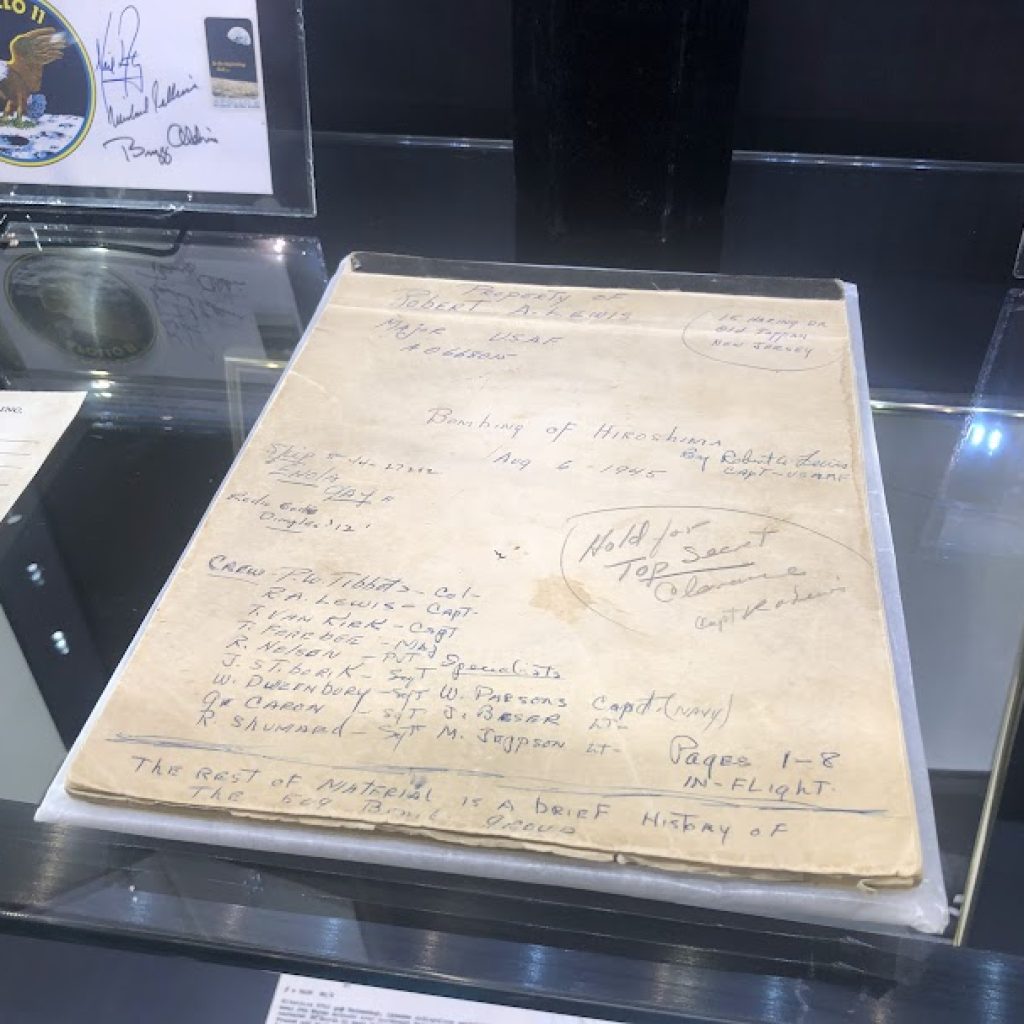 Property of
Robert A. Lewis
Major USAF
15 Haring Dr
Old Tappan
New Jersey
Bombing of Hiroshima
Aug 6 - 1945
By Robert A Lewis
Capt - USAAF
Ship
Enola
Gay"
Radio Code
Dimples '12'
Hold for
Top Secret
Clearance
Capt R A Lewis
Crew - P.W. Tibbets - Col -
R.A. Lewis - Capt -
T. Van Kirk - Capt
T. Ferebee - Maj
R. Nelson - Pvt
J. Stiborik - Sgt
W. Duzenbury - Sgt
Caron - Sgt
R. Shumard - Sgt
Specialists
W. Parsons Capt - (Navy)
J. Beser Lt -
M. Jeppson Lt -
Pages 1-8
In-Flight.
The rest of material is a brief history of
The 509 Group
Neil
Michael Collins
Buzz Aldrin